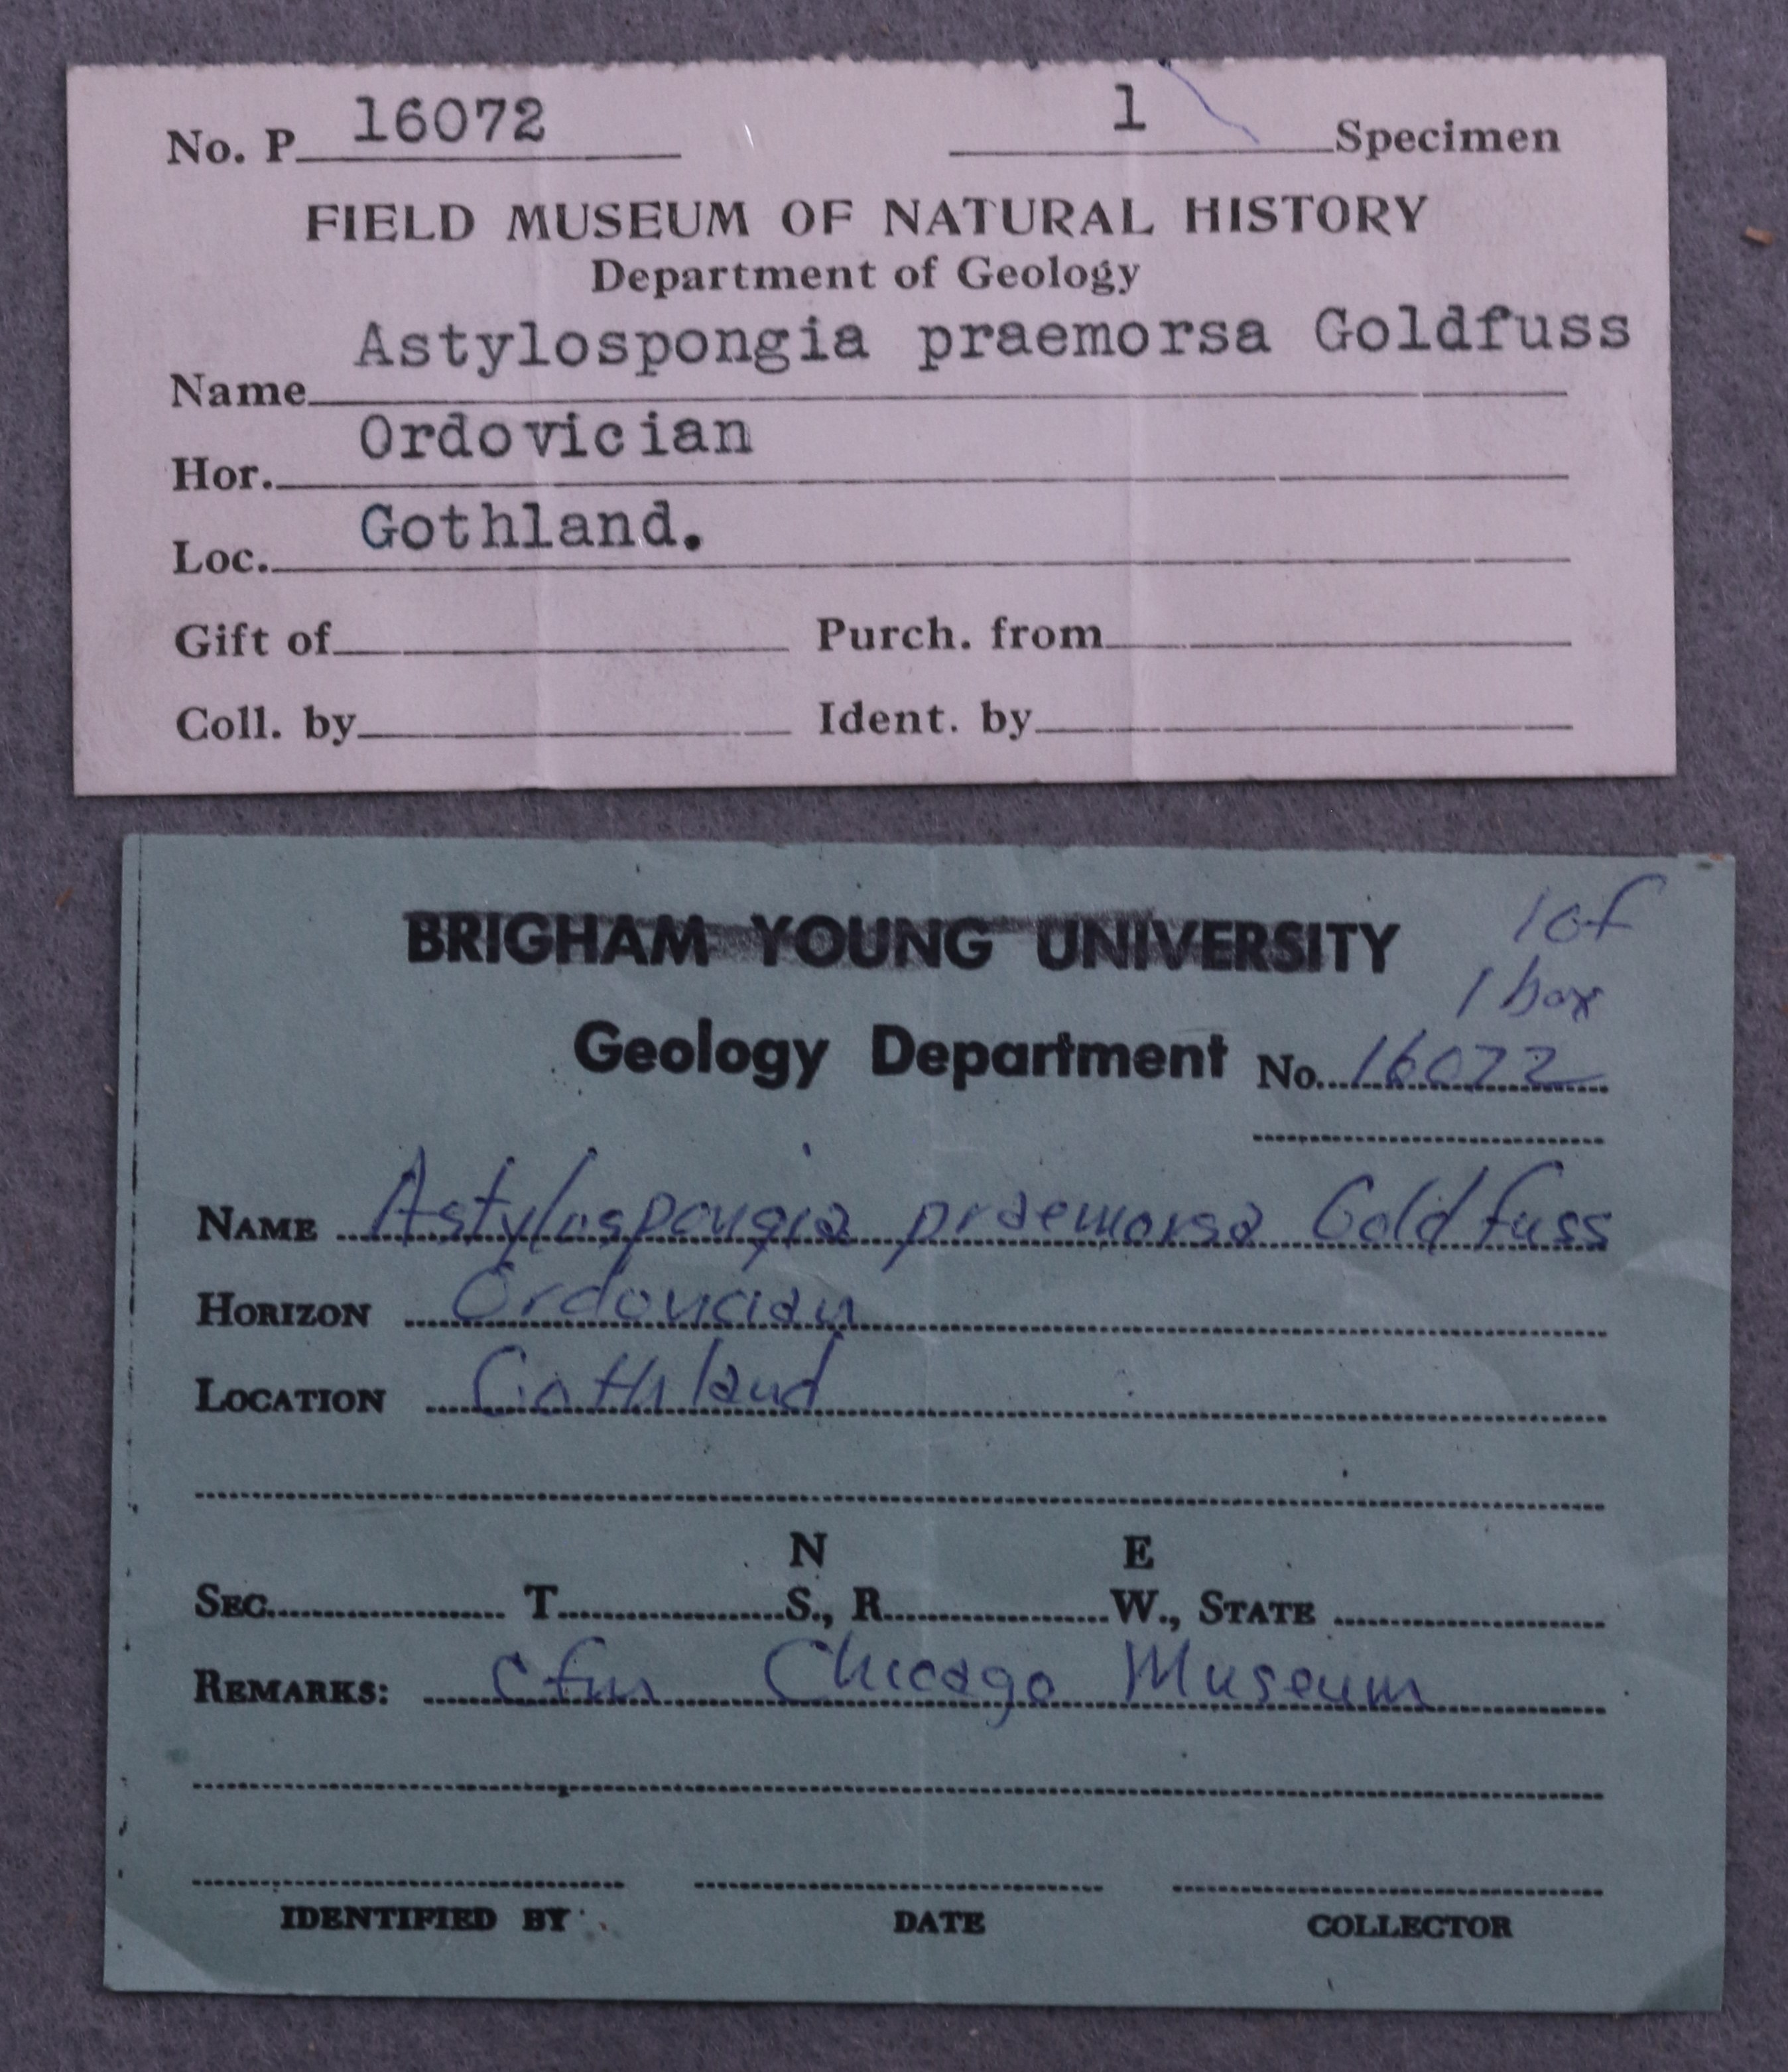 No. P 16072 1 Specimen
FIELD MUSEUM OF NATURAL HISTORY
Department of Geology
Name Astylospongia praemorsa Goldfuss
Hor. Ordovician
Loc. Gothland.
Gift of Purch. from
Coll. by Ident. by
BRIGHAM YOUNG UNIVERSITY
1 of
1 box
Geology Department No. 16072
NAME Astylospongia praemorsa Goldfuss
HORIZON Ordovician
LOCATION Gothland
N E
SEC. T. S., R. W., STATE
REMARKS: Chicago Museum
IDENTIFIED BY DATE COLLECTOR